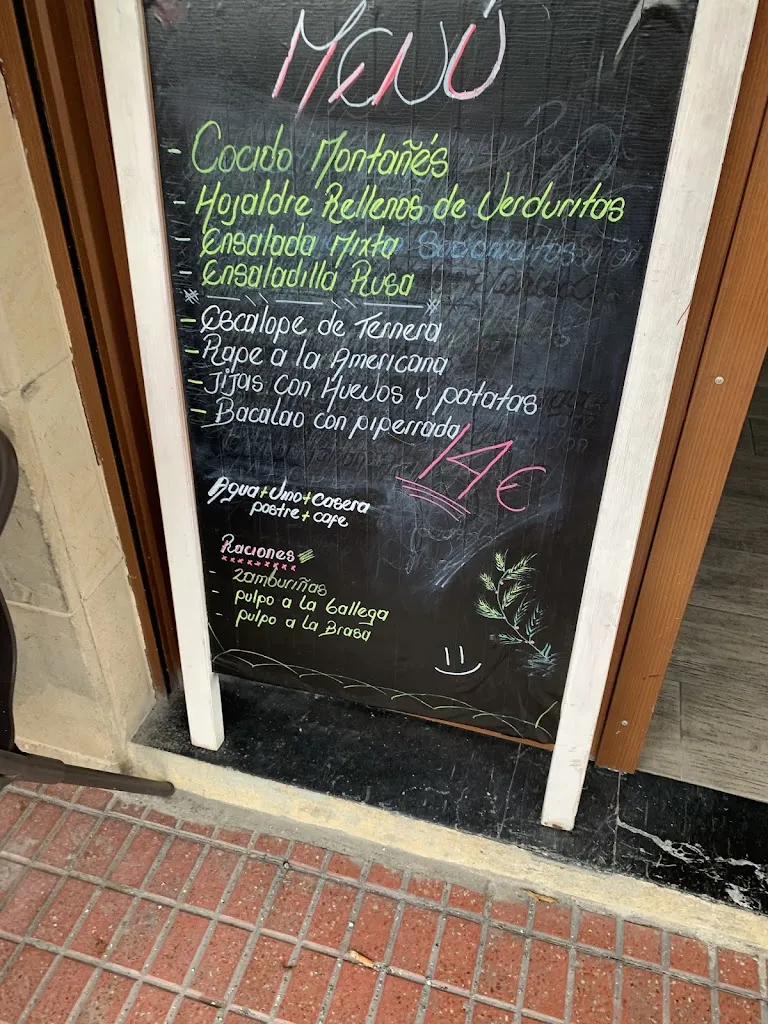 MENÚ
- Cocido Montañés
- Hojaldre Rellenos de Verduritas
- Ensalada Mixta
- Ensaladilla Rusa
- Escalope de Ternera
- Rape a la Americana
- Jijas con Huevos y patatas
- Bacalao con piperrada
14€
Agua+Vino+Casera
postre+cafe
Raciones
- Zamburiñas
- pulpo a la Gallega
- pulpo a la Brasa